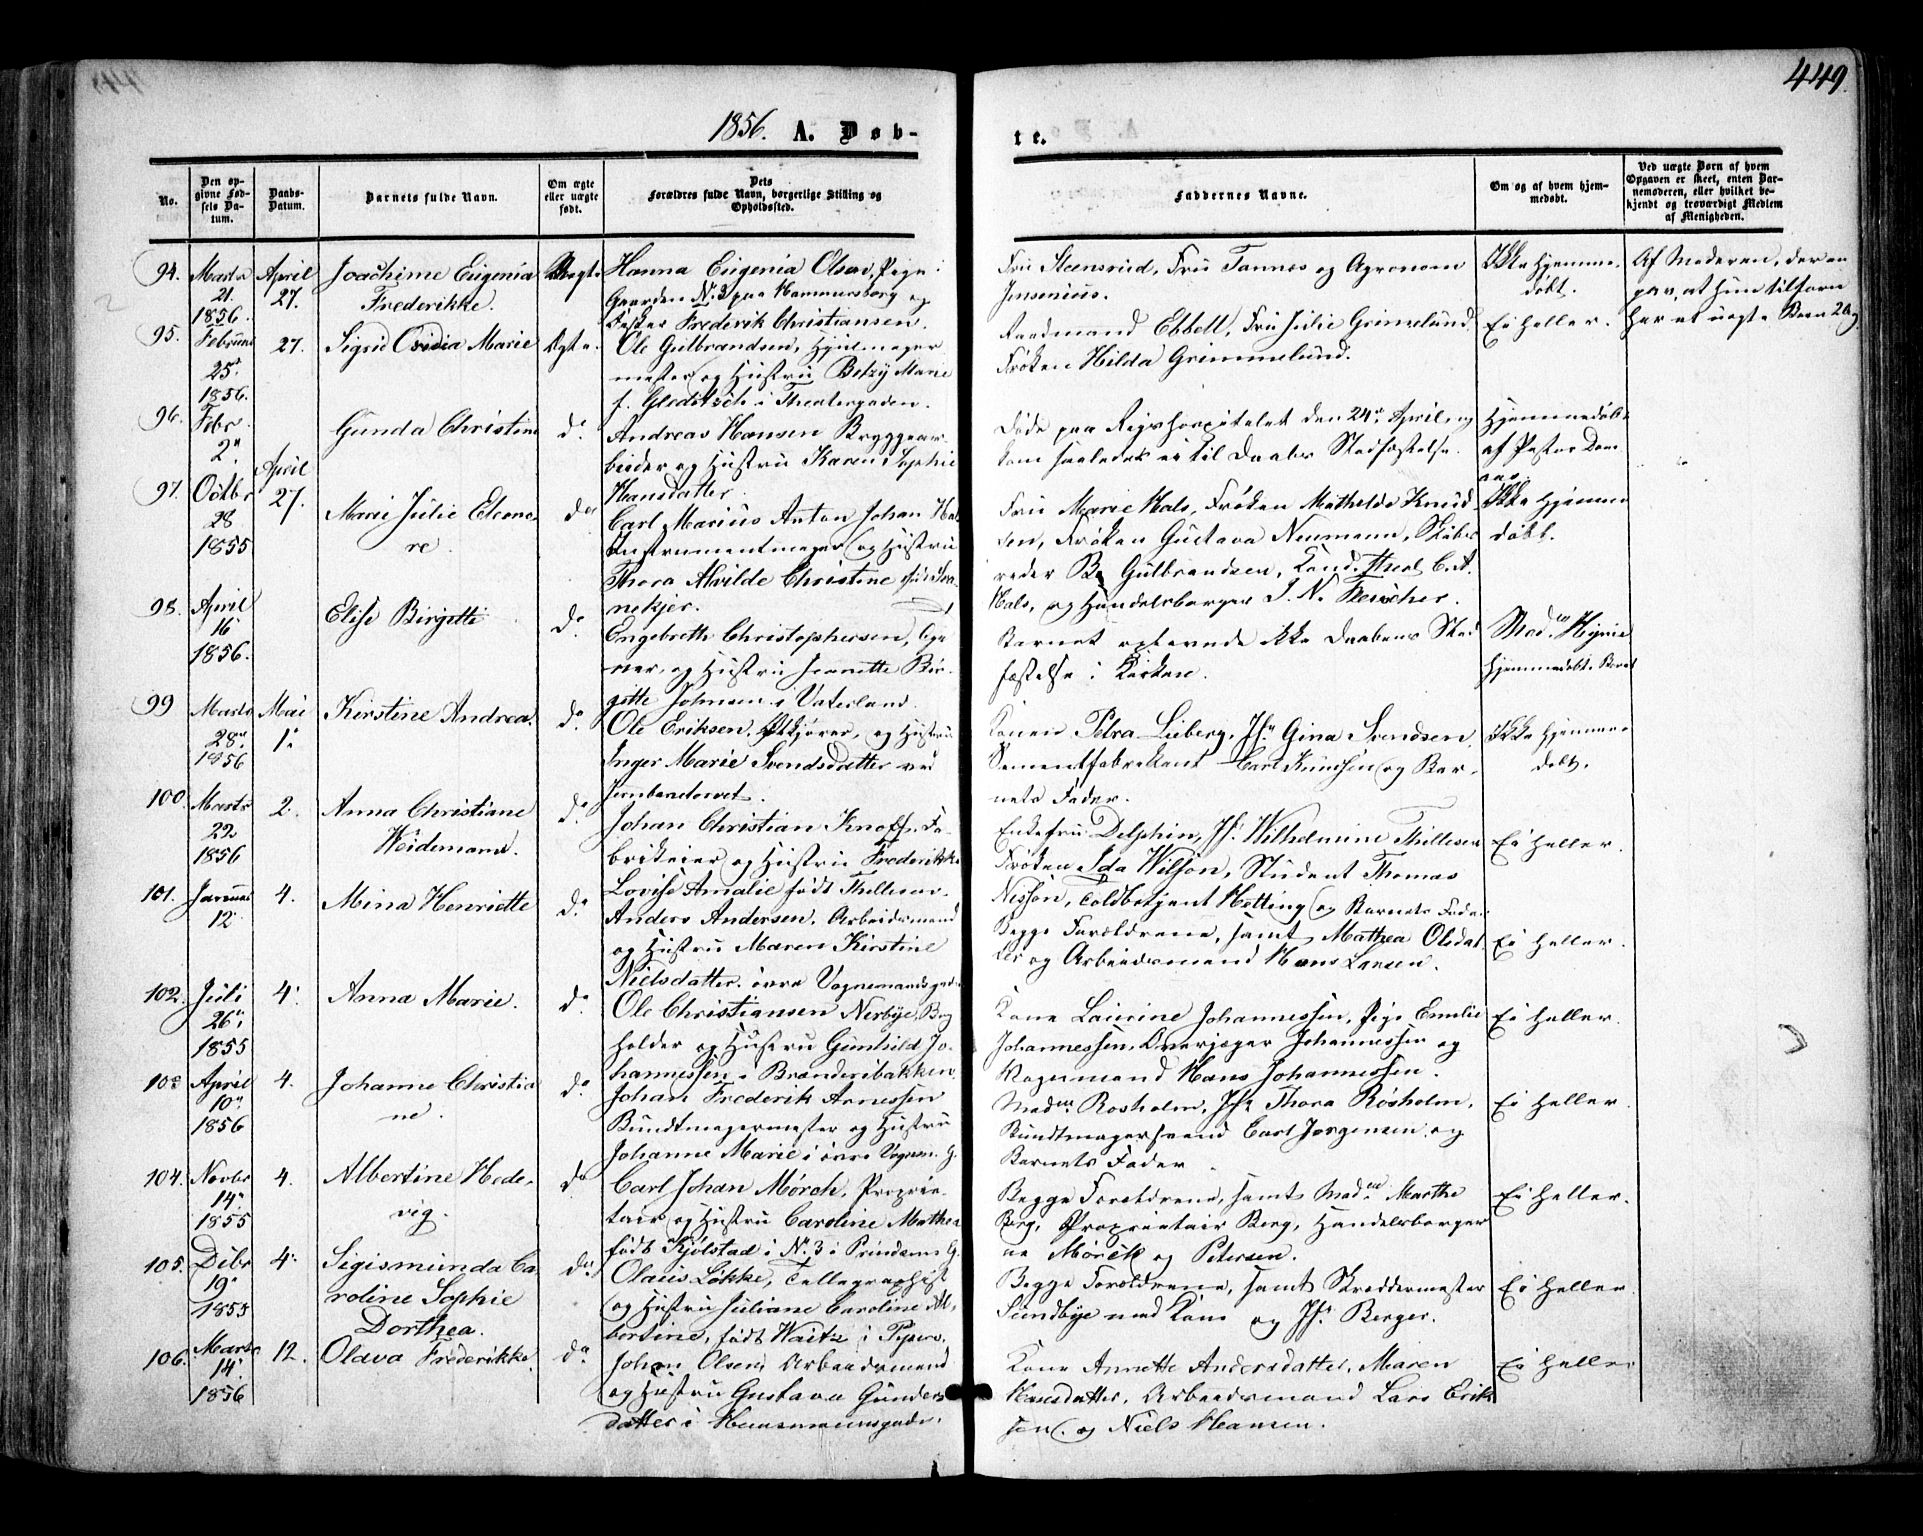 449.
1856. A. Døb-
te.
No.
Den op-
givne Fød-
sels Da-
tum.
Daabs-
Datum.
Barnets fulde Navn.
Om ægte
eller uægte
født.
Dets
Forældres fulde Navn, borgerlige Stilling og
Opholdssted.
Faddernes Navne.
Om og af hvem hjem-
medøbt.
Ved uægte Børn af hvem
Opgaven er skeet, enten Bar-
nemoderen, eller hvilket be-
kjendt og troværdigt Medlem
af Menigheden.
94. Marts
21.
1856.
April
27.
Joachime Eugenia
Frederikke.
Uægte
Hanna Eugenia Olsen, Pige i
Gaarden N. 3 paa Hammersborg og
Frederik Christiansen.
Fru Steensrud, Fru Tannes og Agronom
Jensenius.
Ikke hjemme-
døbt.
Af Moderen, der an
gav, at hun tilforn
har et uægte Barn
95. Februar
25.
1856.
27.
Sigrid Ovidia Marie
Ægte.
Ole Gulbrandsen, Hjulmager
mester og Hustru Betzy Marie
f. Gleditsch i Theatergaden.
Raadmand Ebbell, Fru Julie Grimelund
Frøken Hilda Grimmelund.
Ei heller.
96. Febr
2.
Gunda Christine
do.
Andreas Hansen Bryggear-
beider og Hustru Karen Sophie
Hansdatter.
Døde paa Rigshospitalet den 24de April, og
kom saaledes ei til Daabs Stadfæstelse.
Hjemmedøbt
af Pastor
97. Octbr
28
1855
April
27.
Marie Julie Eleono-
re.
do
Carl Marius Anton Johan Hals
Instrumentmager og Hustru
Thora Alvilde Christine født
nekjer.
Fru Marie Hals, Frøken Mathilde Knud
sen, Frøken Gustava Neumann, Skibs
reder B. Gulbrandsen, Cand. theol. C. A.
Hals, og Handelsborger J. N. Fleischer.
Ikke hjemme
døbt.
98. April
16
1856.
Elise Birgitte
do.
Engebreth Christophersen,
og Hustru Jeanette Bir-
gitte Johnsen i Vaterland.
Barnet oplevede ikke Daabens Stad
fæstelse i Kirken.
hjemmedøbt Barnet
99 Marts
28de
1856
Mai
1.
Kirstine Andrea.
do
Ole Eriksen, og Hustru
Inger Marie Svendsdatter ved
Jernbanetorvet.
Konen Petra Lieberg, Jfr Gina Svendsen
Sementfabrikant Carl Knudsen og Bar-
nets Fader.
Ikke hjemme-
døbt.
100. Marts
22
1856
2.
Anna Christiane
Weidemann.
do.
Johan Christian Knoff, Fa-
brikeier og Hustru Frederikke
Lovise Amalie født Thillesen.
Enkefru Delphin, Jfr. Wilhelmine Thillesen
Frøken Ida Wilson, Student Thomas
Nissen, Toldbetjent Hetting og Barnets Fader.
Ei heller.
101. Januar
12
4.
Mina Henriette
do.
Anders Andersen, Arbeidsmand
og Hustru Maren Kirstine
Nielsdatter. øvre Vognmandsgade
Begge Forældrene, samt Mathea Olsdat
ter og Arbeidsmand Hans Larsen.
Ei heller.
102. Juli
26de
1855
4.
Anna Marie.
do.
Ole Christiansen Nerbye, Bog
holder og Hustru Gunhild Jo-
hannessen i Brænderibakken.
Kone Laurine Johannessen, Pige Emilie
Johannessen, Overjæger Johannessen og
Vognmand Hans Johannessen.
Ei heller.
103 April
10de
1856
4.
Johanne Christia
ne.
do
Johan Frederik Arnessen
Bundtmagermester og Hustru
Johanne Marie i øvre Vognm. G.
Mad. Rosholm, Jfr Thora Rosholm,
Bundtmagersvend Carl Jørgensen og
Barnets Fader.
Ei heller.
104. Novbr
14
1855
4.
Albertine Hede-
vig.
do
Carl Johan Mørch, Proprie-
tair og Hustru Caroline Mathea
født Kjølstad i N. 3 i Prindsens G.
Begge Forældrene, samt Mad. Marthe
Berg, Proprietair Berg, Handelsborger
ne Mørch og Petersen.
Ei heller.
105. Dcbr
19
1855
4.
Sigismunda Ca
roline Sophie
Dorthea.
do.
Olaus Løkke, Tellegraphist
og Hustru Juliane Caroline Al-
bertine, født Waitz i Piperv.
Begge Forældrene, samt Skreddermester
Sundbye med Kone og Jfr. Berger.
Ei heller.
106. Marts
14.
1856
12.
Olava Frederikke.
do.
Johan Olsen Arbeidsmand
og Hustru Gustava Gunders
datter i Hausmannsgade.
Kone Annette Andersdatter, Maren
Hansdatter, Arbeidsmand Lars Erik
sen og Niels Hansen.
Ei heller